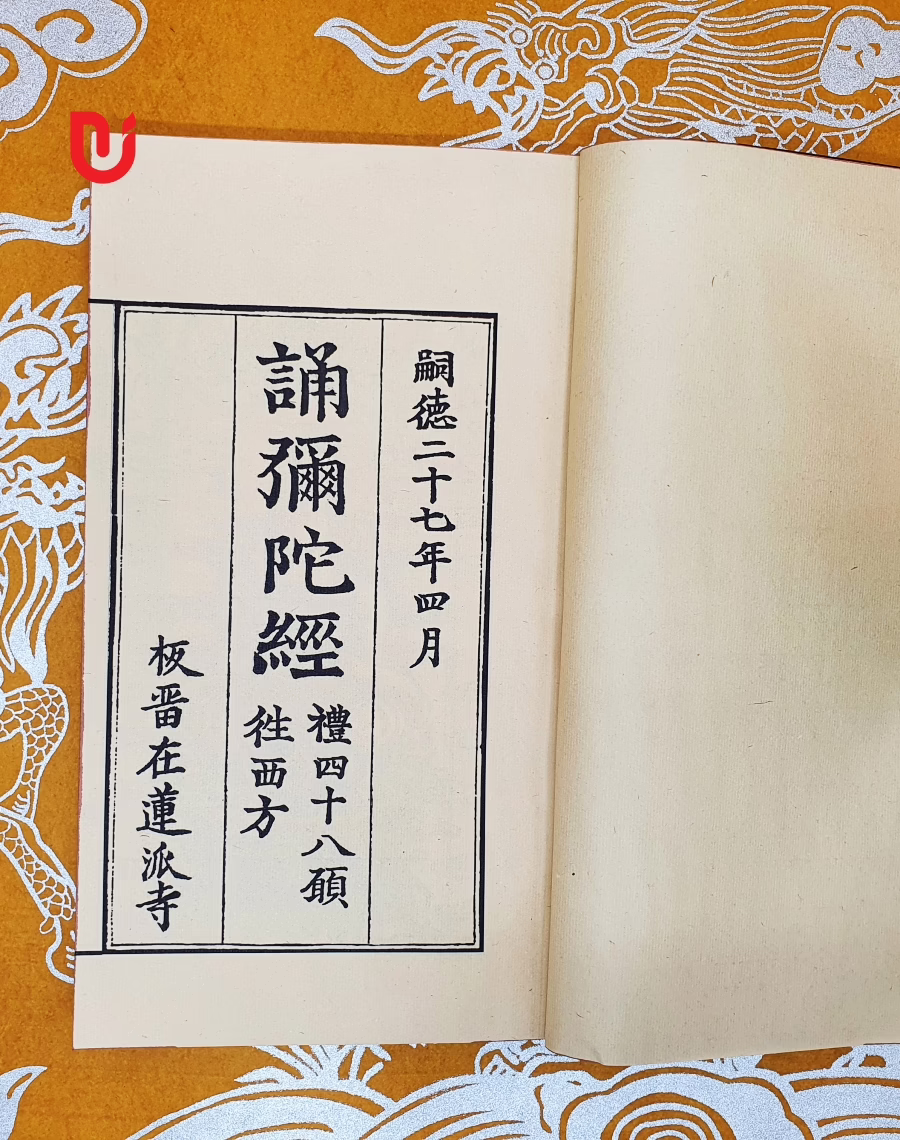 嗣德二十七年四月
誦彌陀經
禮四十八願
徃西方
板畱在蓮派寺